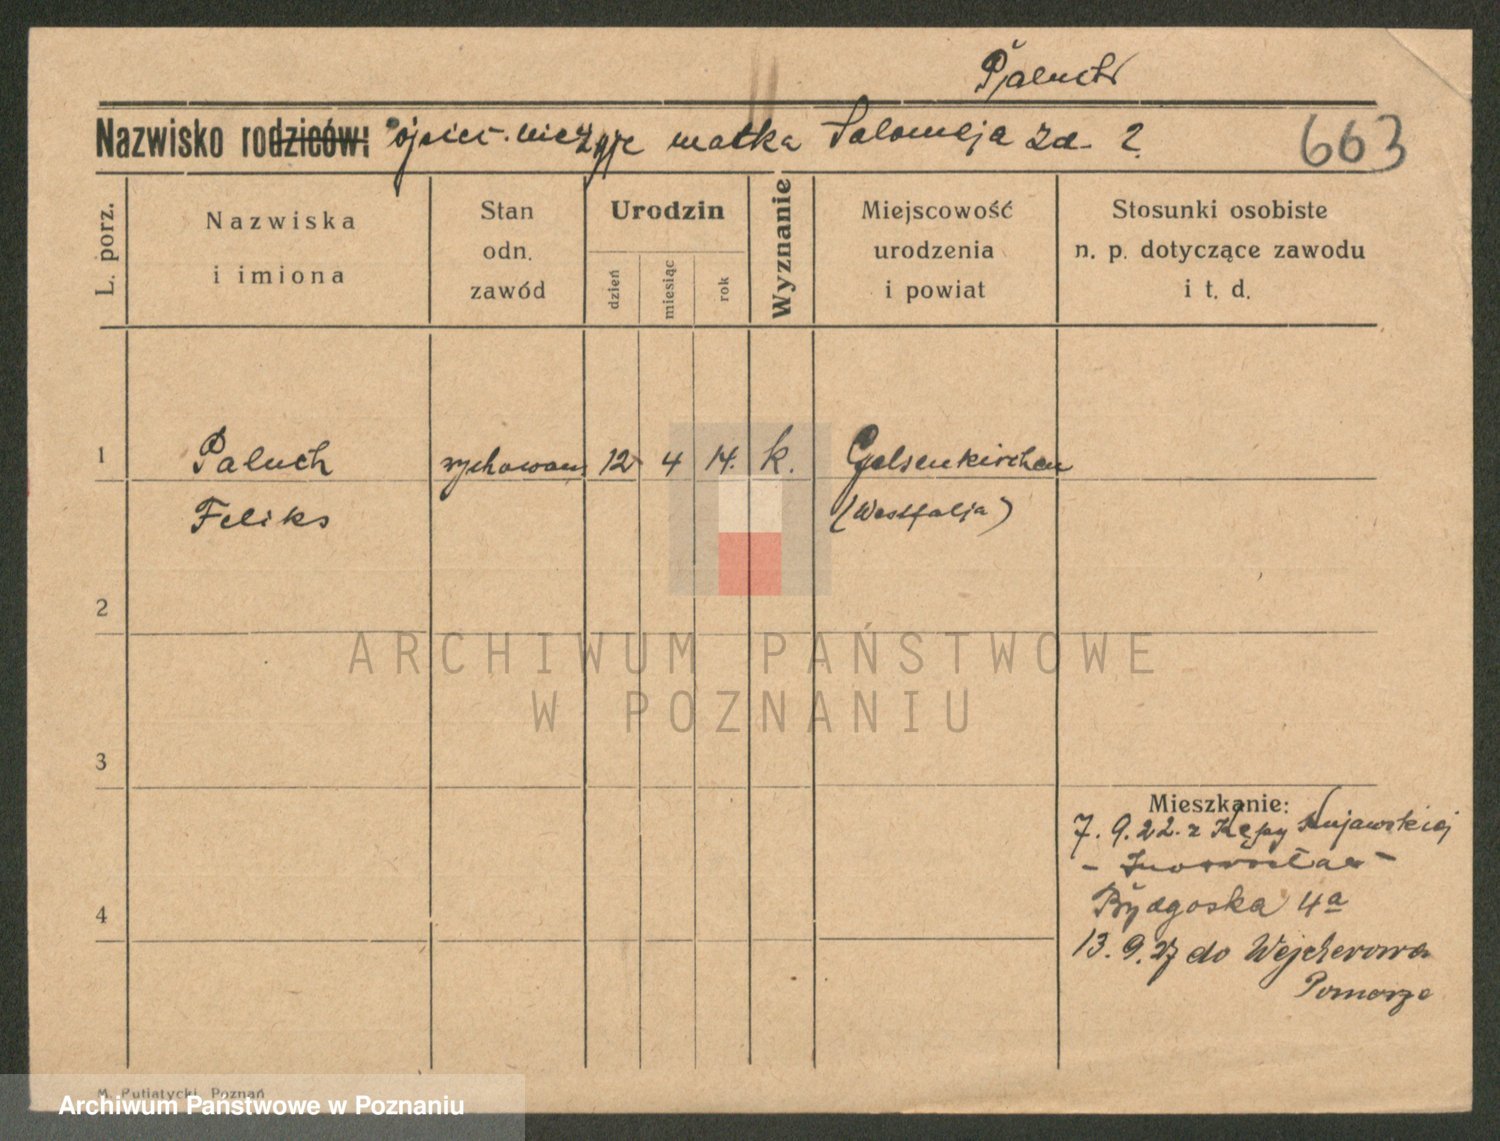 Paluch
Nazwisko rodziców: ojciec nie żyje matka Salomeja zd. ?
663
L. porz.
Nazwiska
i imiona
Stan
odn.
zawód
Urodzin
dzień
miesiąc
rok
Wyznanie
Miejscowość
urodzenia
i powiat
Stosunki osobiste
n. p. dotyczące zawodu
i t. d.
1 Paluch 12 4 14. k. Gelsenkirchen
Feliks (Westfalja)
2
ARCHIWUM PAŃSTWOWE
W POZNANIU
3
Mieszkanie:
7. 9. 22. z Kępy Kujawskiej
- Inowrocław -
4
Bydgoska 4a
13. 9. 27 do Wejcherowa
Pomorze
M. Putiatycki, Poznań
Archiwum Państwowe w Poznaniu